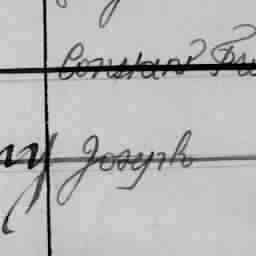 Constant
ny Joseph